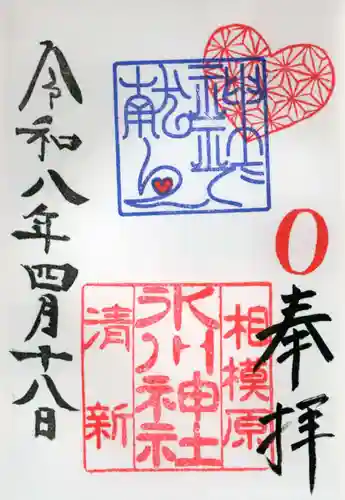 奉拝
相模原
氷川神社
清新
令和八年四月十八日